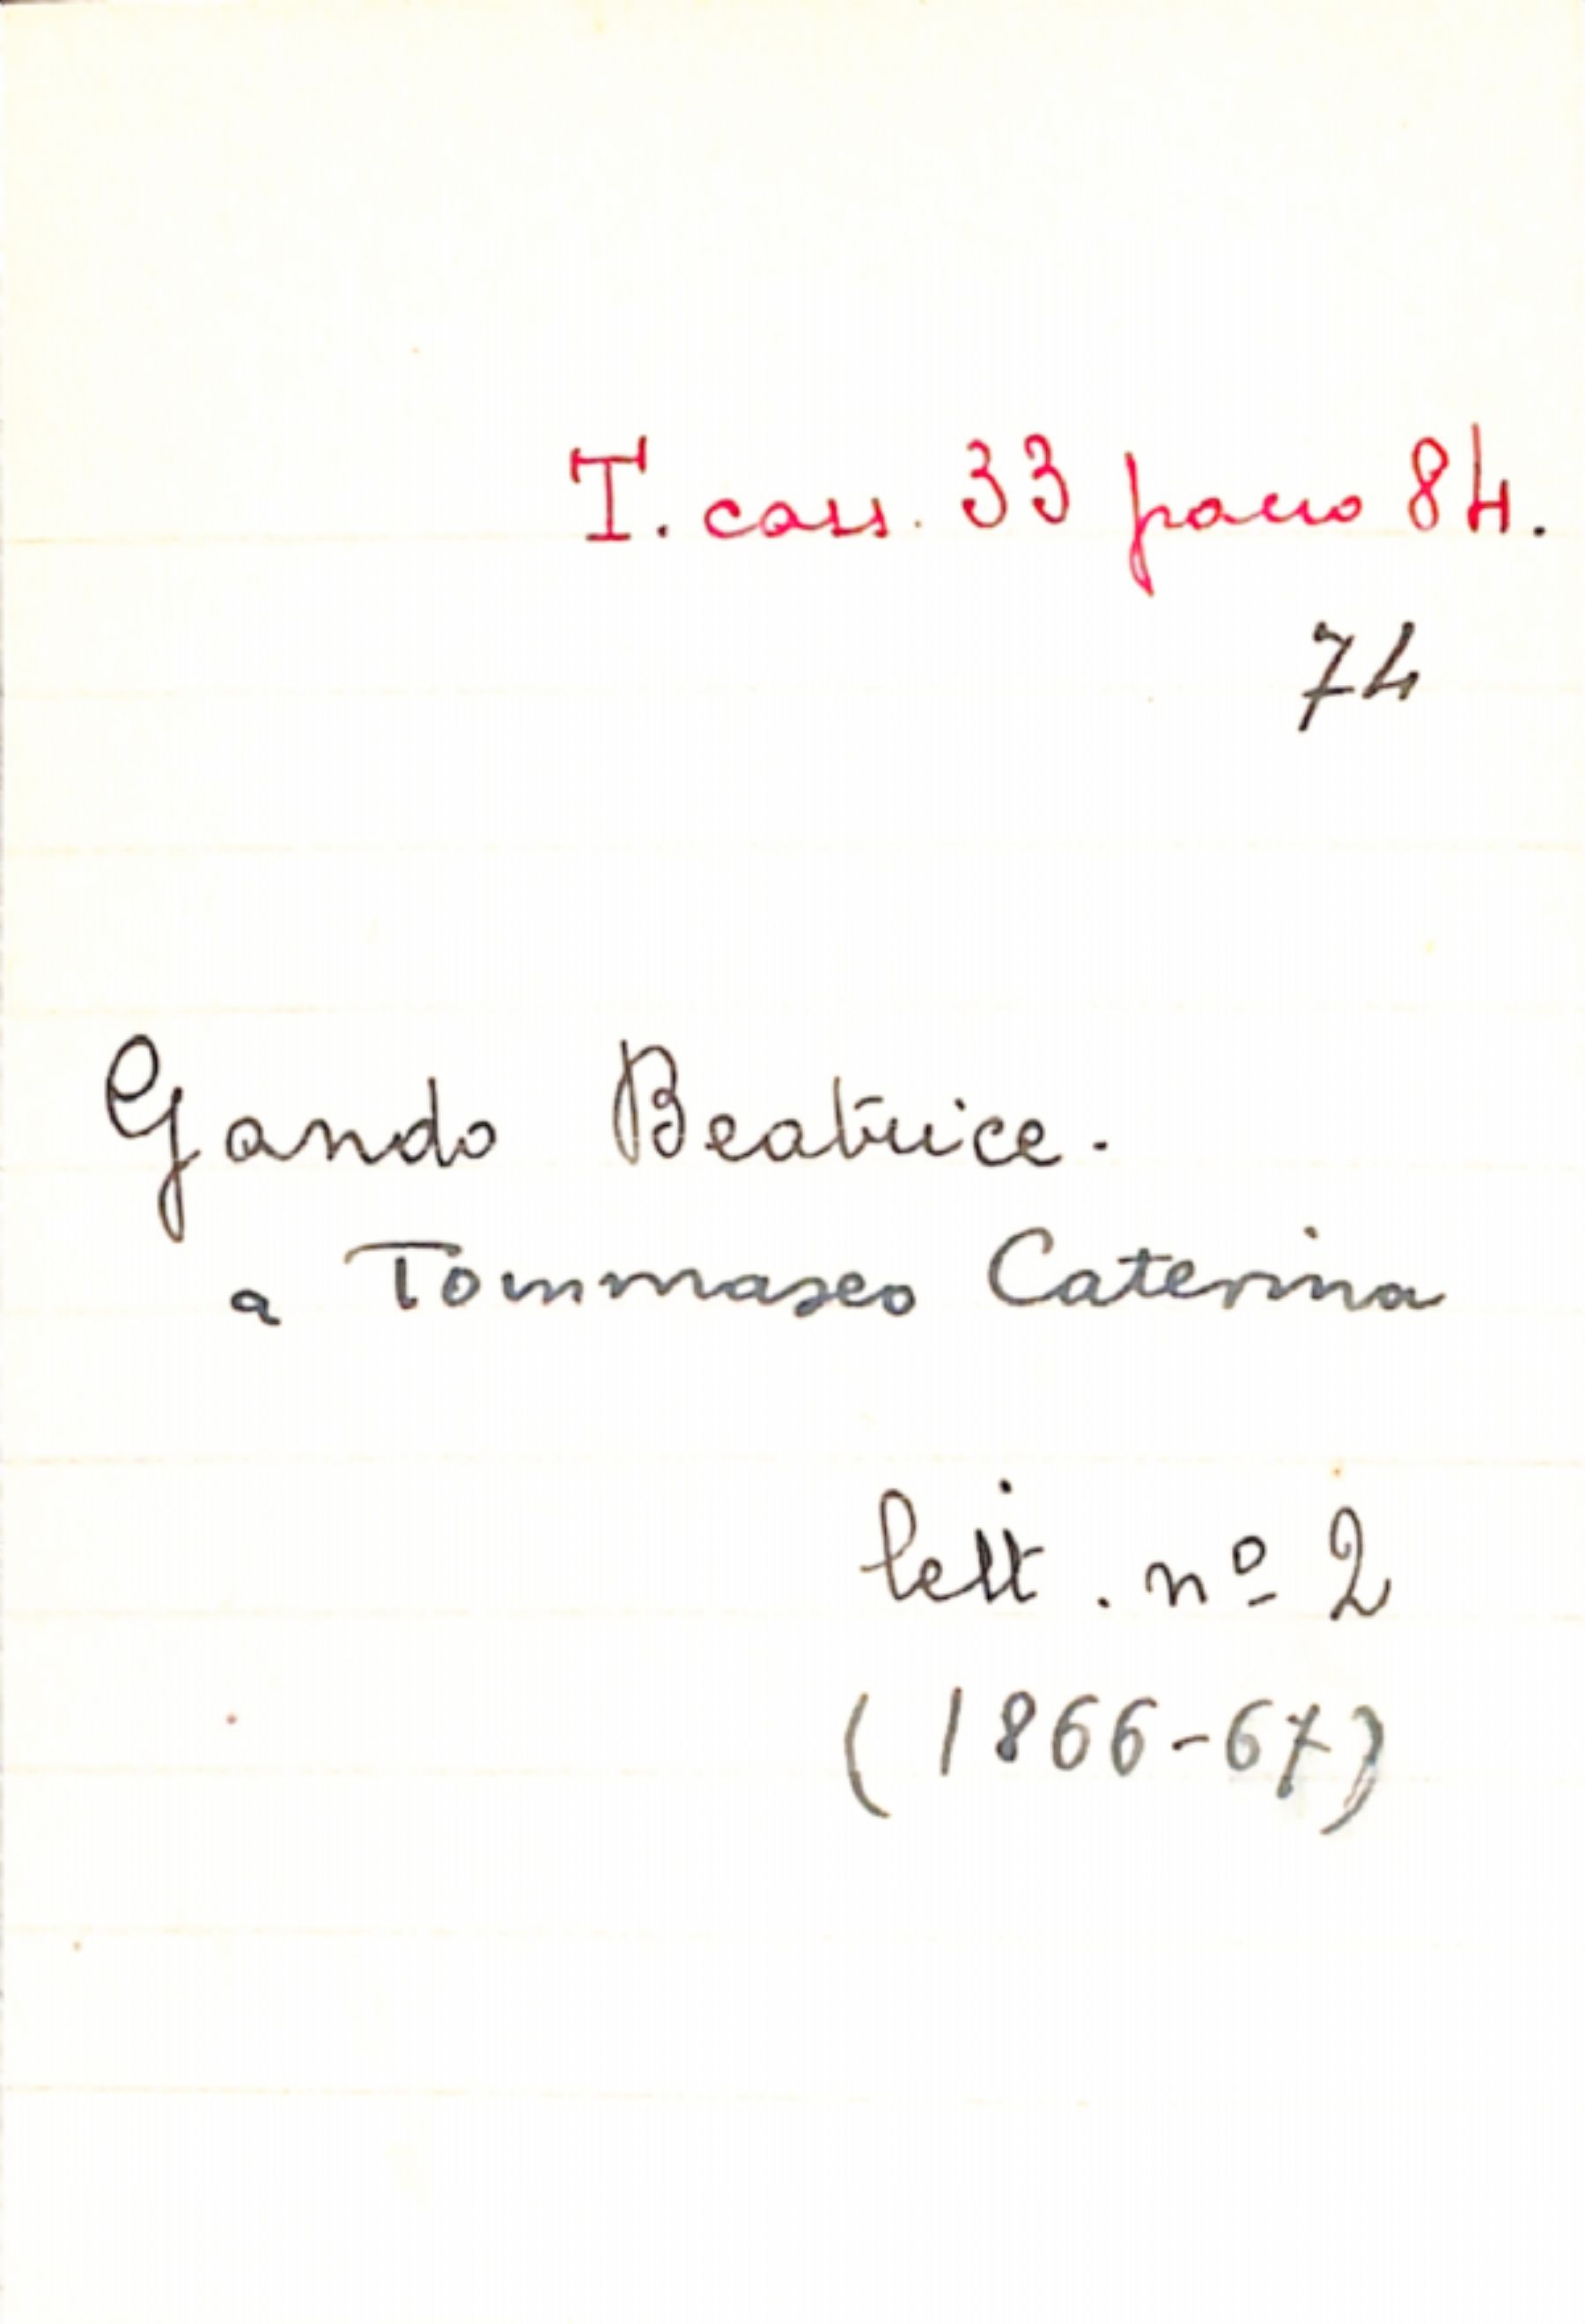 T. cass. 33 pacco 84.
74
Gando Beatrice.
a Tommaseo Caterina
lett. nº 2
(1866-67)